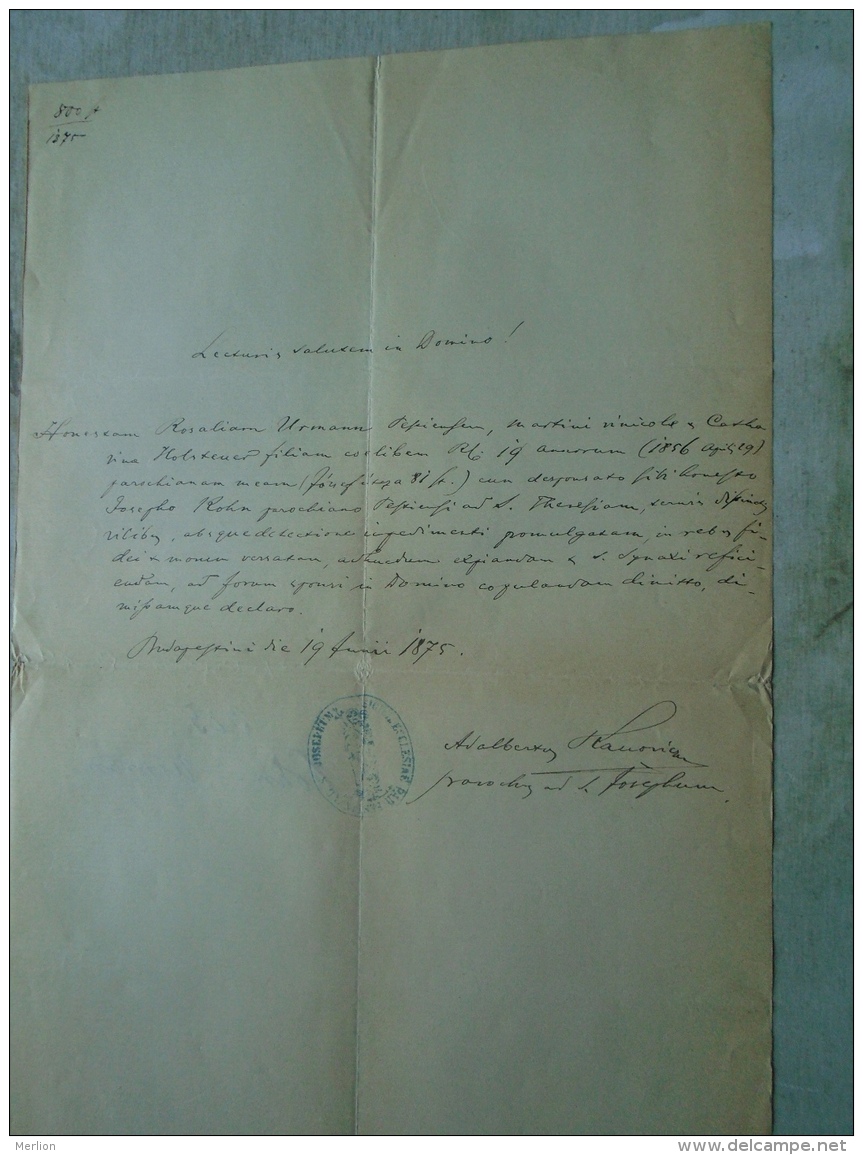 800
1875
Lecturis salutem in Domino!
Honestam Rosaliam Urmann Pestiensem, Martini vinicolæ & Catha
rina filiam coelibem 19 annorum (1856 April 29)
parochianam meam (József utcza 81 sz.) cum desponsato sibi honesto
Josepho Kohn parochiano Pestiensi ad S. Theresiam, ternis
absque detectione impedimenti promulgatam, in rebus fi-
dei & morum versatam, adhucdum expiandam & S. Synaxi refici-
endam, ad forum sponsi in Domino copulandam dimitto, di-
missamque declaro.
Budapestini die 19 Junii 1875.
Adalbertus
parochus ad S. Josephum.
ECCLESIAE JOSEPHI
Merlion
www.delcampe.net